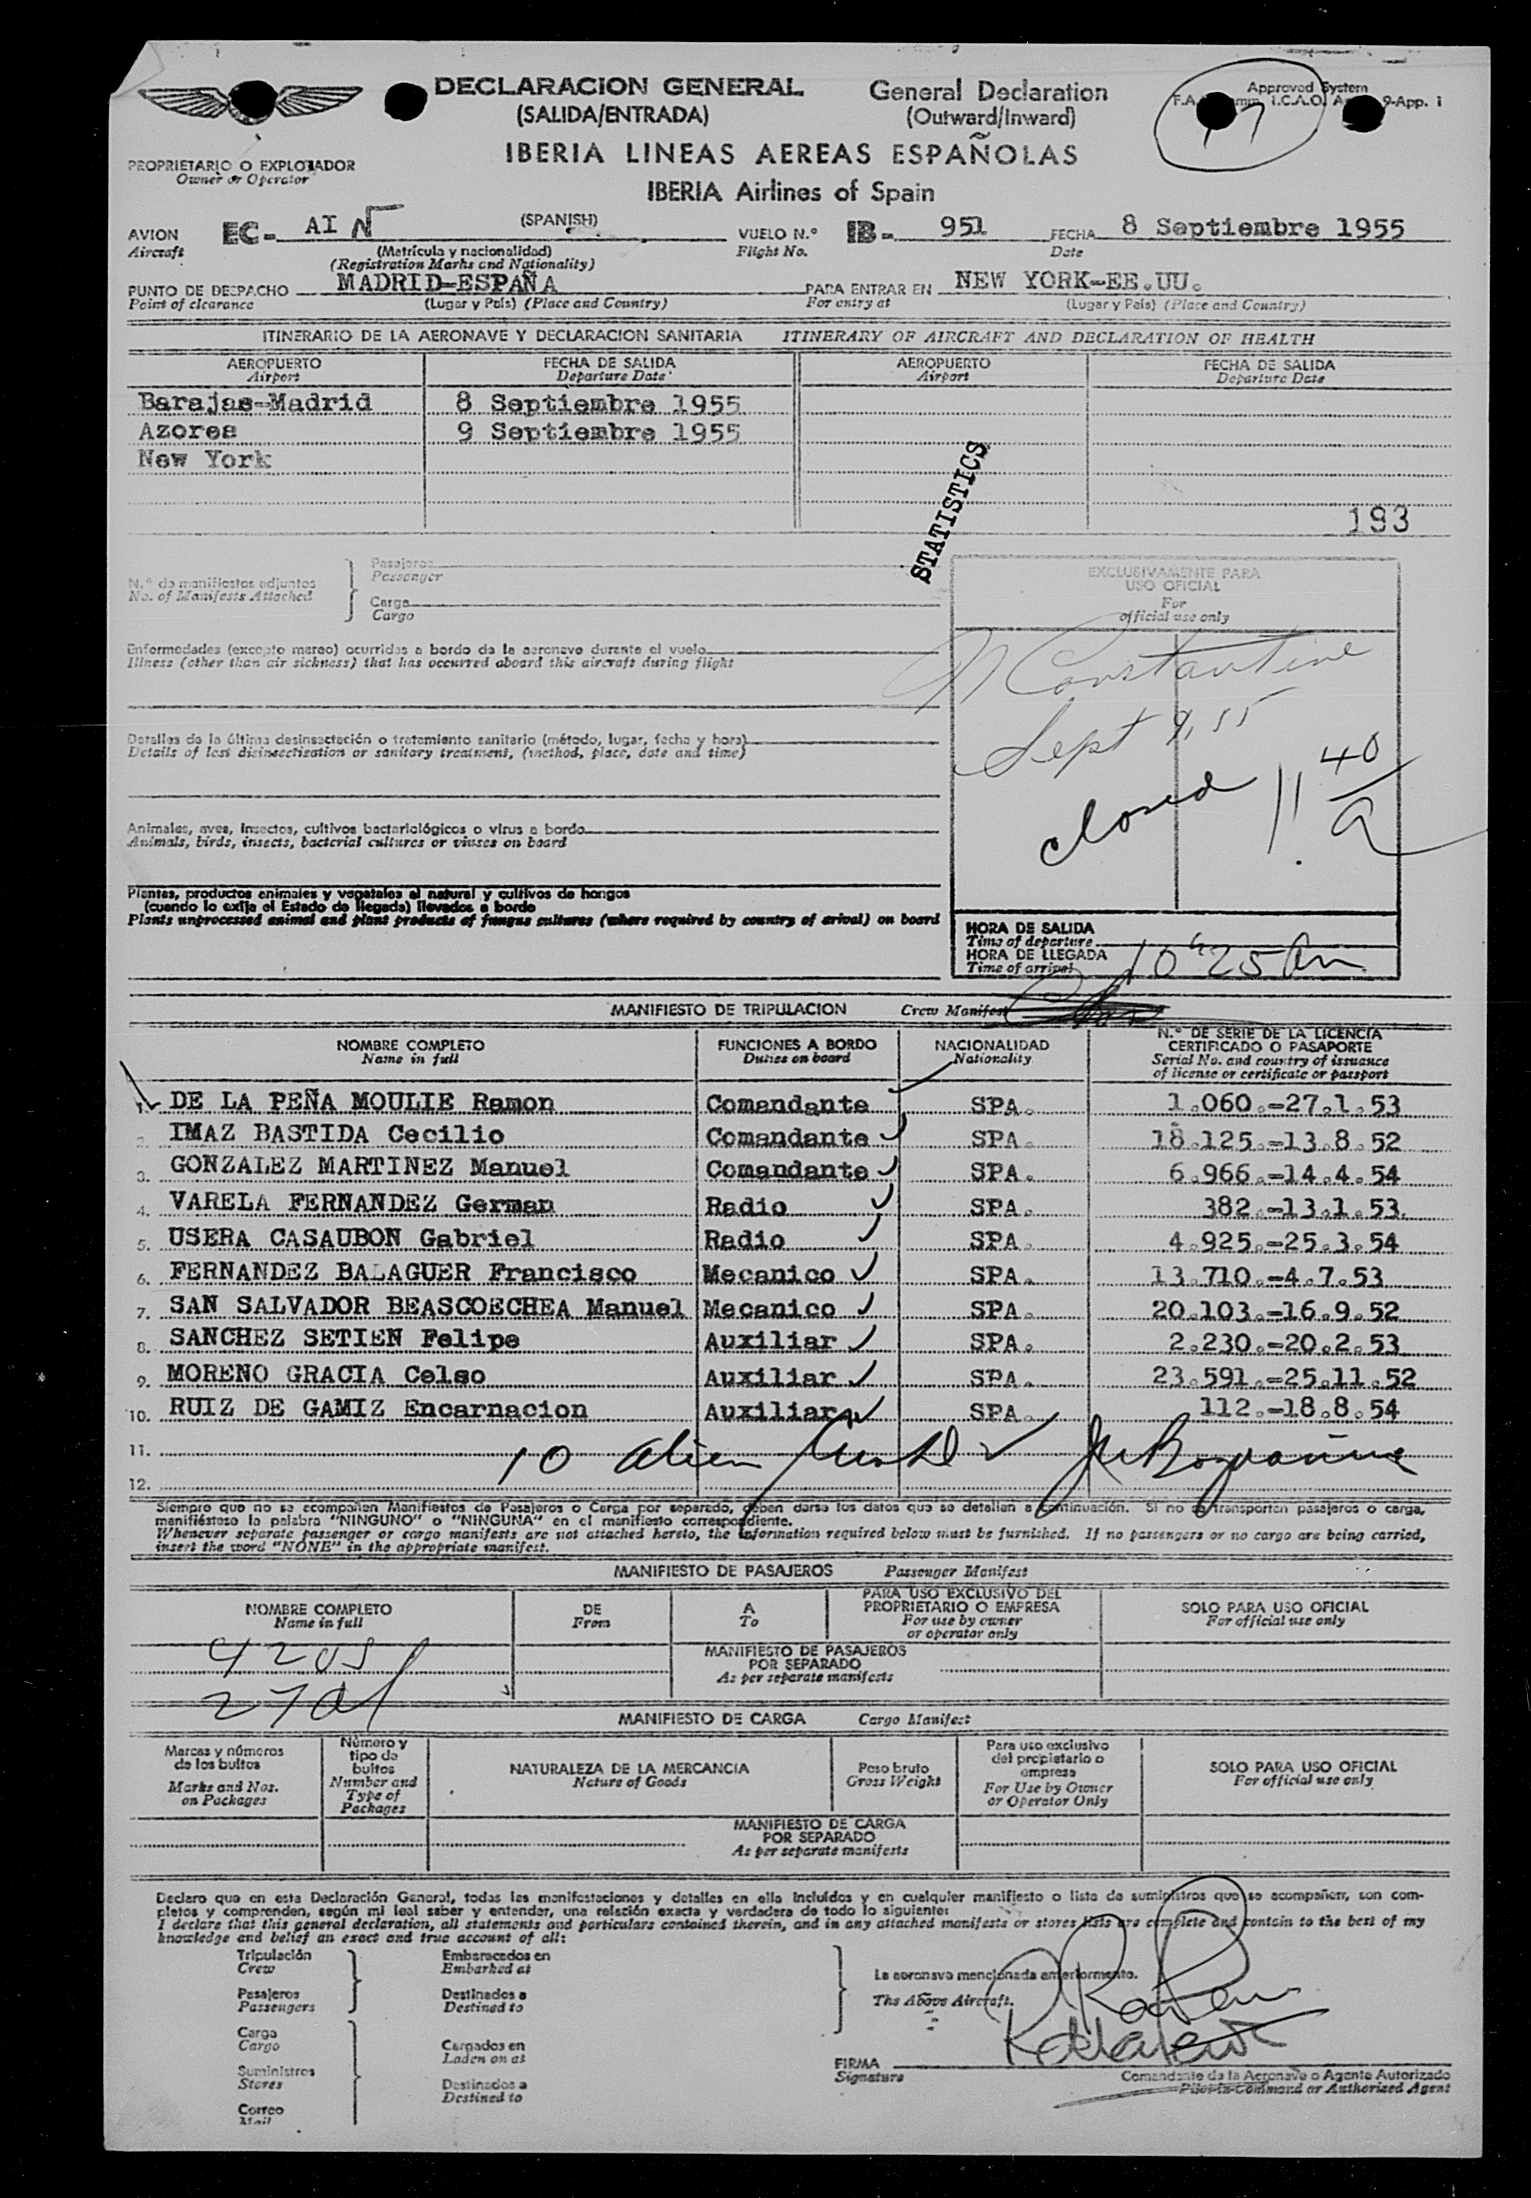 DECLARACION GENERAL
(SALIDA/ENTRADA)
General Declaration
(Outward/Inward)
Approved System
9-App. 1
IBERIA LINEAS AEREAS ESPAÑOLAS
IBERIA Airlines of Spain
PROPRIETARIO O EXPLOTADOR
Owner or Operator
AVION EC- AI N (SPANISH) VUELO N.º IB- 951 FECHA 8 Septiembre 1955
Aircraft (Matrícula y nacionalidad) Flight No. Date
(Registration Marks and Nationality)
PUNTO DE DESPACHO MADRID-ESPAÑA PARA ENTRAR EN NEW YORK-EE.UU.
Point of clearance (Lugar y País) (Place and Country) For entry at (Lugar y País) (Place and Country)
ITINERARIO DE LA AERONAVE Y DECLARACION SANITARIA ITINERARY OF AIRCRAFT AND DECLARATION OF HEALTH
AEROPUERTO FECHA DE SALIDA AEROPUERTO FECHA DE SALIDA
Airport Departure Date Airport Departure Date
Barajas-Madrid 8 Septiembre 1955
Azores 9 Septiembre 1955
New York
STATISTICS
193
N.º de manifiestos adjuntos
No. of Manifests Attached
Pasajeros
Passenger
Carga
Cargo
EXCLUSIVAMENTE PARA
USO OFICIAL
For
official use only
Enfermedades (excepto mareo) ocurridas a bordo de la aeronave durante el vuelo
Illness (other than air sickness) that has occurred aboard this aircraft during flight
Constantine
Sept 9, 55
closed 11 40/a
Detalles de la última desinsectación o tratamiento sanitario (método, lugar, fecha y hora)
Details of last disinsectisation or sanitary treatment, (method, place, date and time)
Animales, aves, insectos, cultivos bactariológicos o virus a bordo
Animals, birds, insects, bacterial cultures or viuses on board
Plantas, productos animales y vegetales al natural y cultivos de hongos
(cuando lo exija el Estado de llegada) llevados a bordo
Plants unprocessed animal and plant products of fungus cultures (where required by country of arival) on board
HORA DE SALIDA
Time of departure
HORA DE LLEGADA
Time of arrival 10 25 am
MANIFIESTO DE TRIPULACION Crew Manifest
NOMBRE COMPLETO FUNCIONES A BORDO NACIONALIDAD N.º DE SERIE DE LA LICENCIA
Name in full Duties on board Nationality CERTIFICADO O PASAPORTE
Serial No. and country of issuance
of license or certificate or passport
1. DE LA PEÑA MOULIE Ramon Comandante SPA. 1.060.-27.1.53
2. IMAZ BASTIDA Cecilio Comandante SPA. 18.125.-13.8.52
3. GONZALEZ MARTINEZ Manuel Comandante SPA. 6.966.-14.4.54
4. VARELA FERNANDEZ German Radio SPA. 382.-13.1.53.
5. USERA CASAUBON Gabriel Radio SPA. 4.925.-25.3.54
6. FERNANDEZ BALAGUER Francisco Mecanico SPA. 13.710.-4.7.53
7. SAN SALVADOR BEASCOECHEA Manuel Mecanico SPA. 20.103.-16.9.52
8. SANCHEZ SETIEN Felipe Auxiliar SPA. 2.230.-20.2.53
9. MORENO GRACIA Celso Auxiliar SPA. 23.591.-25.11.52
10. RUIZ DE GAMIZ Encarnacion Auxiliar SPA. 112.-18.8.54
11. 10 alien
12.
Siempre que no se acompañen Manifiestos de Pasajeros o Carga por separado, deben darse los datos que se detallan a continuación. Si no se transportan pasajeros o carga,
manifiéstese la palabra "NINGUNO" o "NINGUNA" en el manifiesto correspondiente.
Whenever separate passenger or cargo manifests are not attached hereto, the information required below must be furnished. If no passengers or no cargo are being carried,
insert the word "NONE" in the appropriate manifest.
MANIFIESTO DE PASAJEROS Passenger Manifest
NOMBRE COMPLETO DE A PARA USO EXCLUSIVO DEL SOLO PARA USO OFICIAL
Name in full From To PROPRIETARIO O EMPRESA For official use only
For use by owner
or operator only
42 US
27 al
MANIFIESTO DE PASAJEROS
POR SEPARADO
As per separate manifests
MANIFIESTO DE CARGA Cargo Manifest
Marcas y números
de los bultos
Marks and Nos.
on Packages
Número y
tipo de
bultos
Number and
Type of
Packages
NATURALEZA DE LA MERCANCIA
Nature of Goods
Peso bruto
Gross Weight
Para uso exclusivo
del propietario o
empresa
For Use by Owner
or Operator Only
SOLO PARA USO OFICIAL
For official use only
MANIFIESTO DE CARGA
POR SEPARADO
As per separate manifests
Declaro que en esta Declaración General, todas las manifestaciones y detalles en ella incluídos y en cualquier manifiesto o lista de suministros que se acompañen, son com-
pletos y comprenden, según mi leal saber y entender, una relación exacta y verdadera de todo lo siguiente:
I declare that this general declaration, all statements and particulars contained therein, and in any attached manifests or stores lists are complete and contain to the best of my
knowledge and belief an exact and true account of all:
Tripulación
Crew
Pasajeros
Passengers
Carga
Cargo
Suministros
Stores
Correo
Mail
Embarcados en
Embarked at
Destinados a
Destined to
Cargados en
Laden on at
Destinados a
Destined to
La aeronave mencionada anteriormente.
The Above Aircraft.
FIRMA
Signature
Comandante de la Aeronave o Agente Autorizado
Pilot-in-Command or Authorized Agent